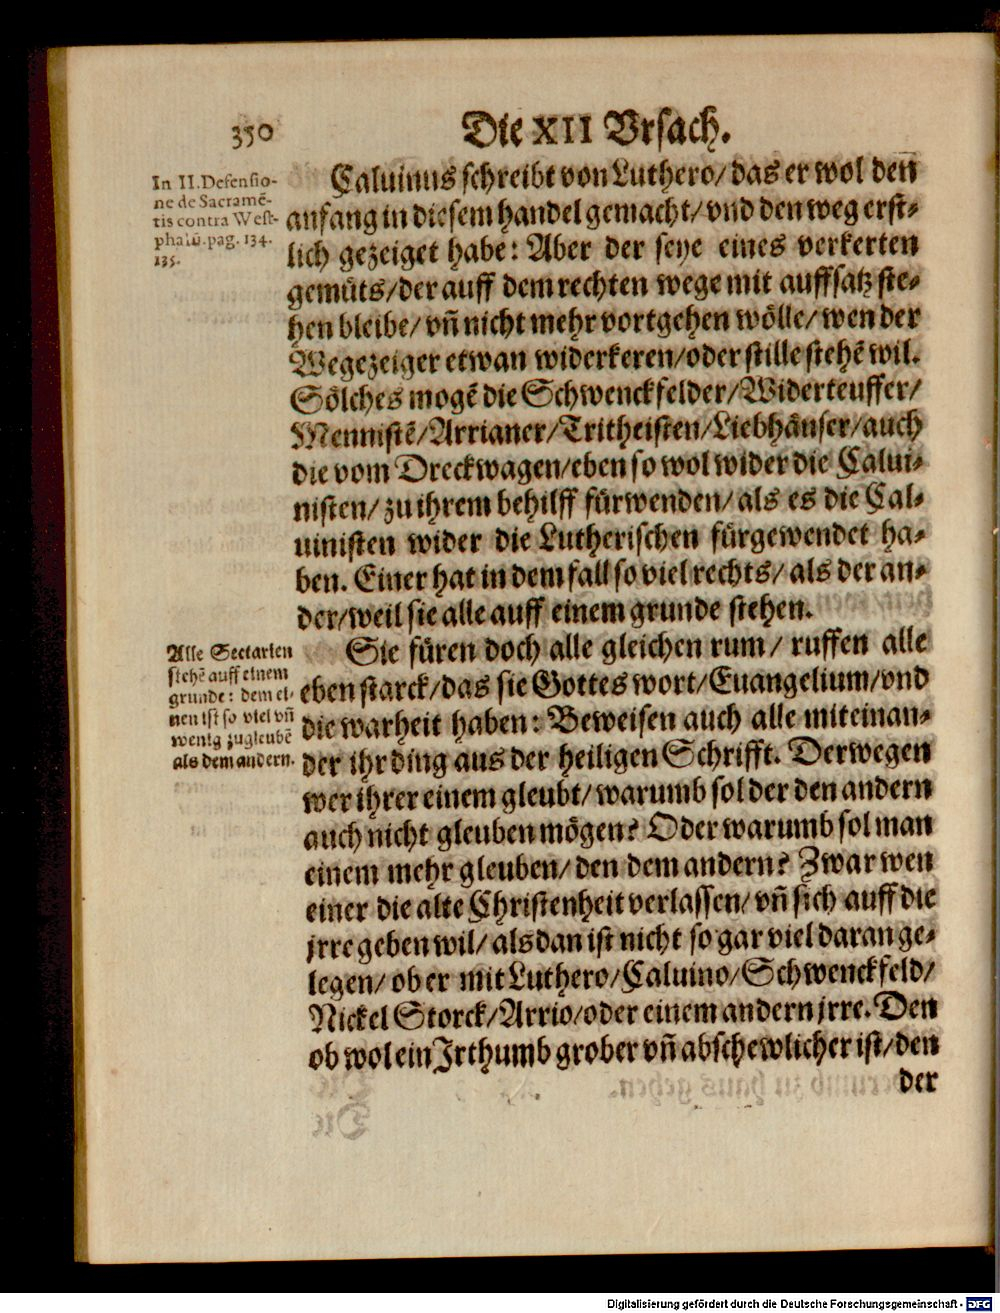 350
Die XII Vrsach.
In II. Defensio-
ne de Sacramē-
tis contra West-
phalū. pag. 134.
135.
Caluinus schreibt von Luthero/ das er wol den
anfang in diesem handel gemacht/ vnd den weg erst-
lich gezeiget habe: Aber der seye eines verkerten
gemüts/ der auff dem rechten wege mit auffsatz ste-
hen bleibe/ vñ nicht mehr vortgehen wölle/ wen der
Wegezeiger etwan widerkeren/ oder stille stehē wil.
Sölches mogē die Schwenckfelder/ Widerteuffer/
Mennistē/ Arrianer/ Tritheisten/ Liebhäuser/ auch
die vom Dreckwagen/ eben so wol wider die Calui-
nisten/ zu ihrem behilff fürwenden/ als es die Cal-
uinisten wider die Lutherischen fürgewendet ha-
ben. Einer hat in dem fall so viel rechts/ als der an-
der/ weil sie alle auff einem grunde stehen.
Alle Sectarien
stehē auff einem
grunde: dem ei-
nen ist so viel vñ
wenig zugleubē
als dem andern.
Sie füren doch alle gleichen rum/ ruffen alle
eben starck/ das sie Gottes wort/ Euangelium/ vnd
die warheit haben: Beweisen auch alle miteinan-
der ihr ding aus der heiligen Schrifft. Derwegen
wer ihrer einem gleubt/ warumb sol der den andern
auch nicht gleuben mögen? Oder warumb sol man
einem mehr gleuben/ den dem andern? Zwar wen
einer die alte Christenheit verlassen/ vñ sich auff die
jrre geben wil/ als dan ist nicht so gar viel daran ge-
legen/ ob er mit Luthero/ Caluino/ Schwenckfeld/
Nickel Storck/ Arrio/ oder einem andern jrre. Den
ob wol ein Jrthumb grober vñ abschewlicher ist/ den
der
Digitalisierung gefördert durch die Deutsche Forschungsgemeinschaft - DFG